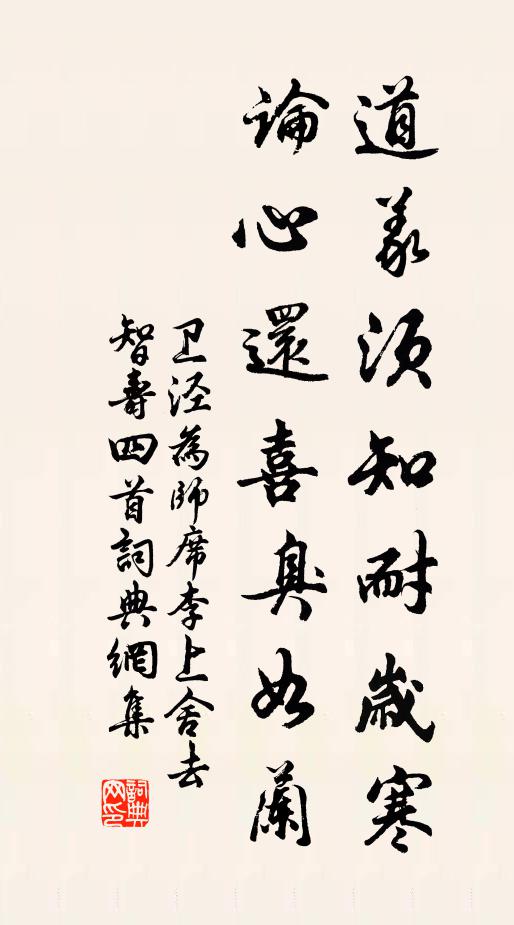 道義須知耐歲寒
論心還喜臭如蘭
卫涇為師席李上舍去
智壽四首詞典網集
詞典網印